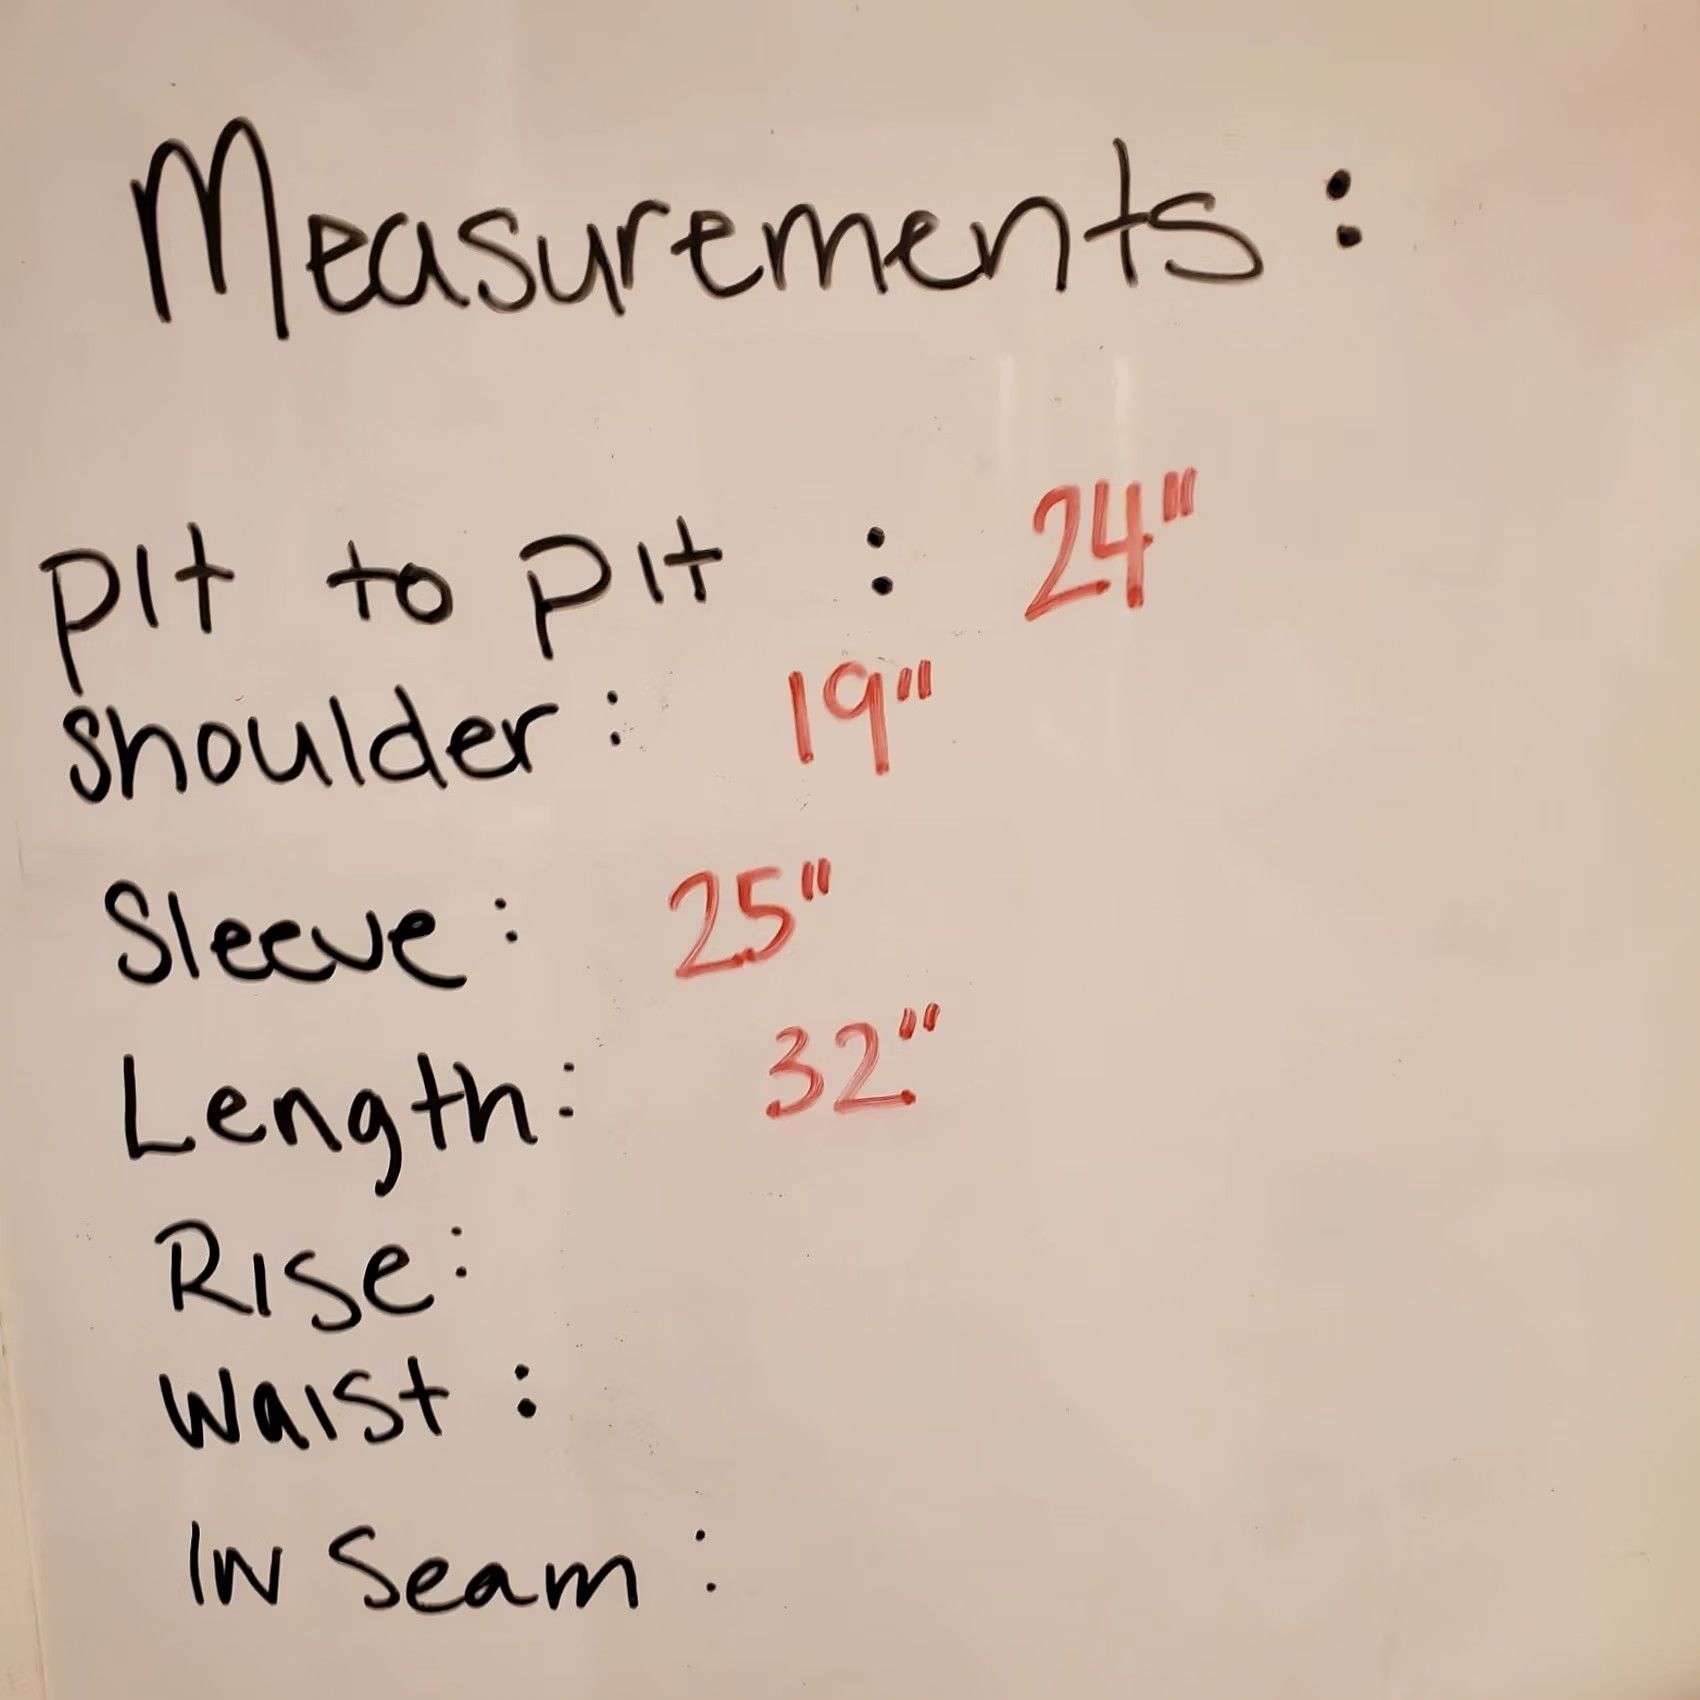 Measurements:
pit to pit : 24"
shoulder: 19"
Sleeve: 25"
Length: 32"
Rise:
Waist:
In Seam: